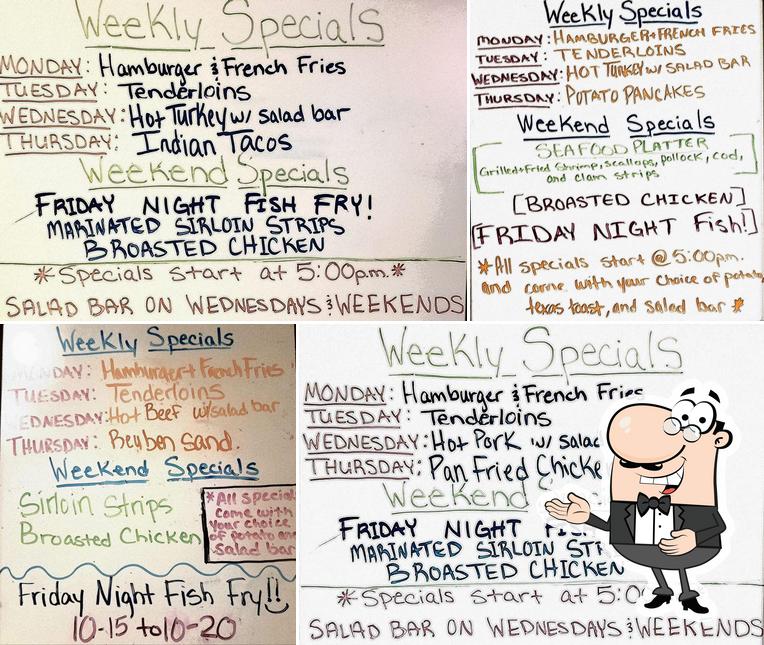 Weekly Specials
MONDAY: Hamburger & French Fries
TUESDAY: Tenderloins
WEDNESDAY: Hot Turkey w/ salad bar
THURSDAY: Indian Tacos
Weekend Specials
FRIDAY NIGHT FISH FRY!
MARINATED SIRLOIN STRIPS
BROASTED CHICKEN
*Specials start at 5:00p.m.*
SALAD BAR ON WEDNESDAYS & WEEKENDS
Weekly Specials
MONDAY: HAMBURGER+FRENCH FRIES
TUESDAY: TENDERLOINS
WEDNESDAY: HOT TURKEY w/ SALAD BAR
THURSDAY: POTATO PANCAKES
Weekend Specials
SEAFOOD PLATTER
Grilled+Fried Shrimp, scallops, pollock, cod,
and clam strips
[BROASTED CHICKEN]
[FRIDAY NIGHT Fish!]
*All specials start @ 5:00pm.
and come with your choice of potato,
texas toast, and salad bar *
Weekly Specials
MONDAY: Hamburger+French Fries
TUESDAY: Tenderloins
WEDNESDAY: Hot Beef w/salad bar
THURSDAY: Reuben Sand.
Weekend Specials
Sirloin Strips
Broasted Chicken
*All special
come with
your choice
of potato and
salad bar
Friday Night Fish Fry!!
10-15 to 10-20
Weekly Specials
MONDAY: Hamburger & French Fries
TUESDAY: Tenderloins
WEDNESDAY: Hot Pork w/ salad
THURSDAY: Pan Fried Chicke
Weekend
FRIDAY NIGHT
MARINATED SIRLOIN STR
BROASTED CHICKEN
*Specials start at 5:0
SALAD BAR ON WEDNESDAYS & WEEKENDS